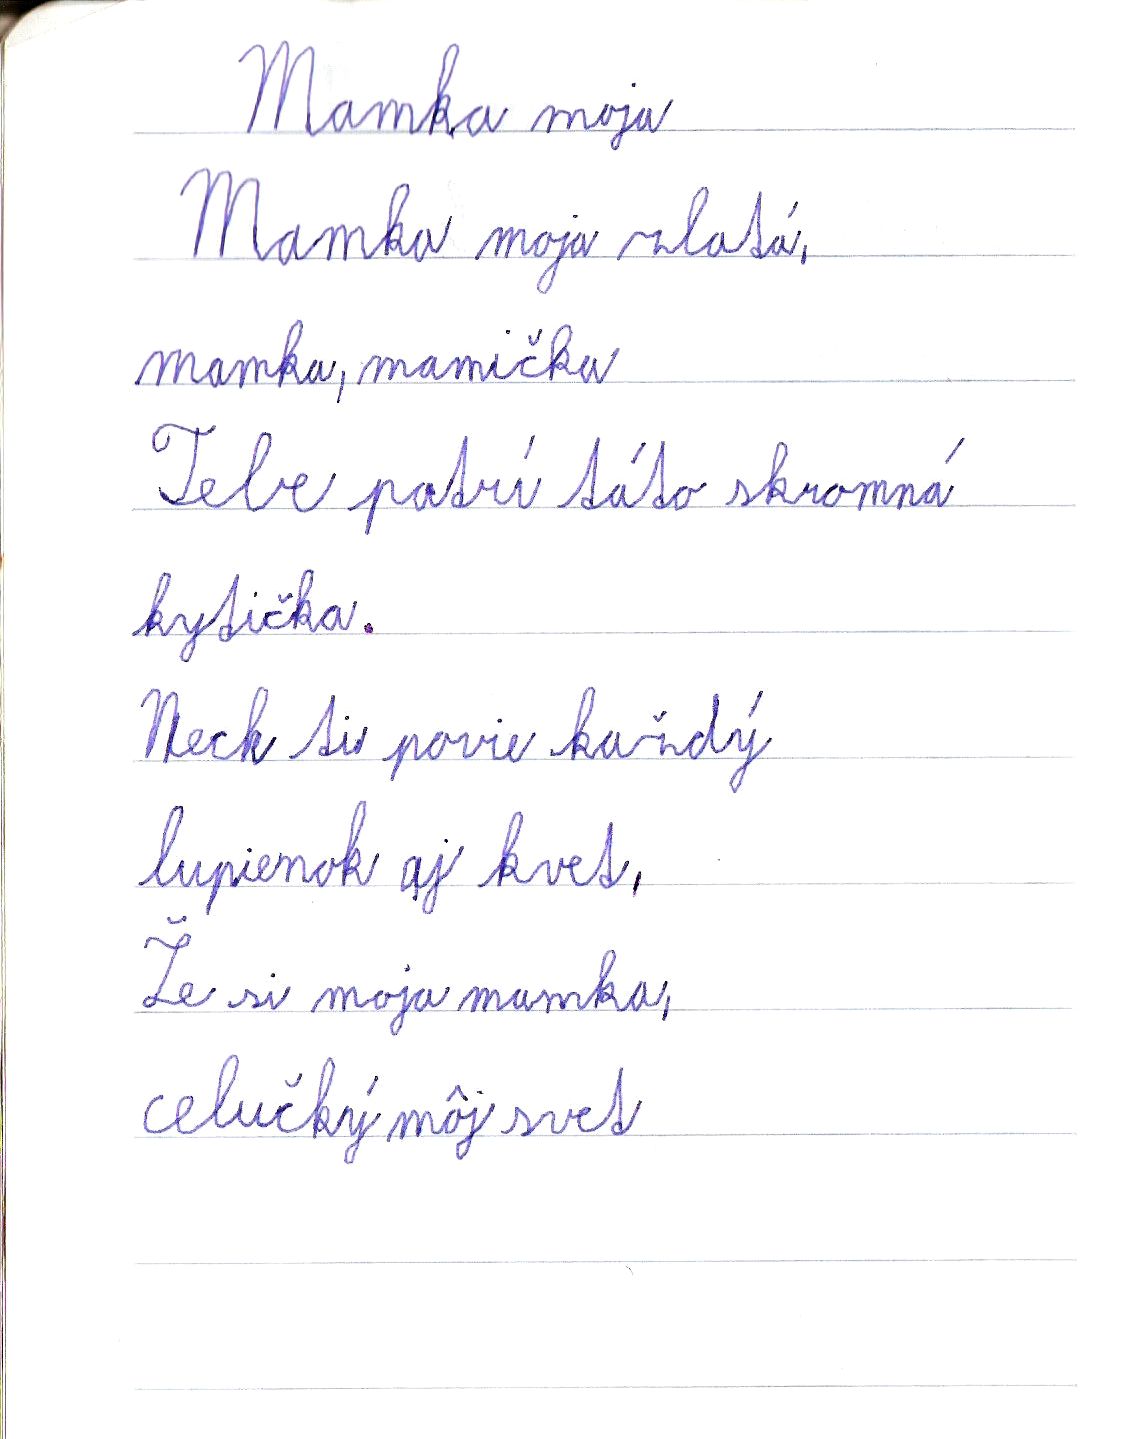 Mamka moja
Mamka moja zlatá,
mamka, mamička
Tebe patrí táto skromná
kytička.
Nech ti povie každý
lupienok aj kvet,
Že si moja mamka,
celučký môj svet